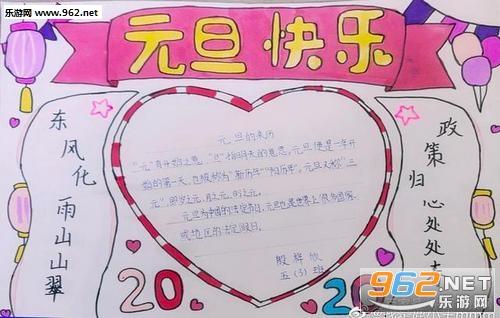 乐游网
www.962.net
元旦快乐
东风化雨山山翠
政策归心处处
元旦的来历
"元"有开始之意，"旦"指明天的意思，元旦便是一年开
始的第一天，也被称为"新历年""阳历年"。元旦又称"三
元"，即岁之元、月之元、时之元。
元旦为中国的法定节日，元旦也是世界上很多国家
或地区的法定假日。
殷
欣
五（3）班
20
20
962.NET
乐游网